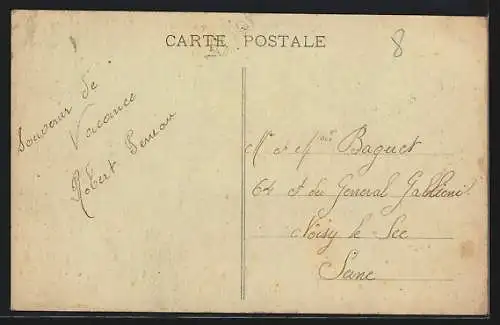 CARTE POSTALE
8
Souvenir de
Vacance
Robert
M et Mme Baguet
64 du General Gallieni
Noisy le Sec
Seine